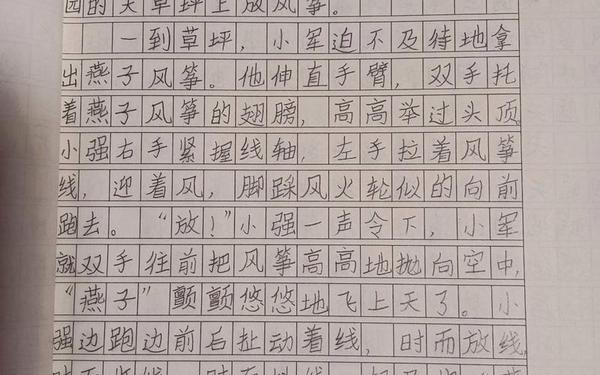 园的大草坪上放风筝。
一到草坪，小军迫不及待地拿
出燕子风筝。他伸直手臂，双手托
着燕子风筝的翅膀，高高举过头顶。
小强右手紧握线轴，左手拉着风筝
线，迎着风，脚踩风火轮似的向前
跑去。“放！”小强一声令下，小军
就双手往前把风筝高高地抛向空中，
“燕子”颤颤悠悠地飞上天了。小
强边跑边前后扯动着线，时而放线，